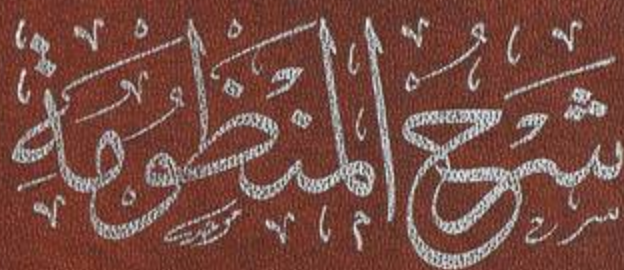 شرح المنظومة